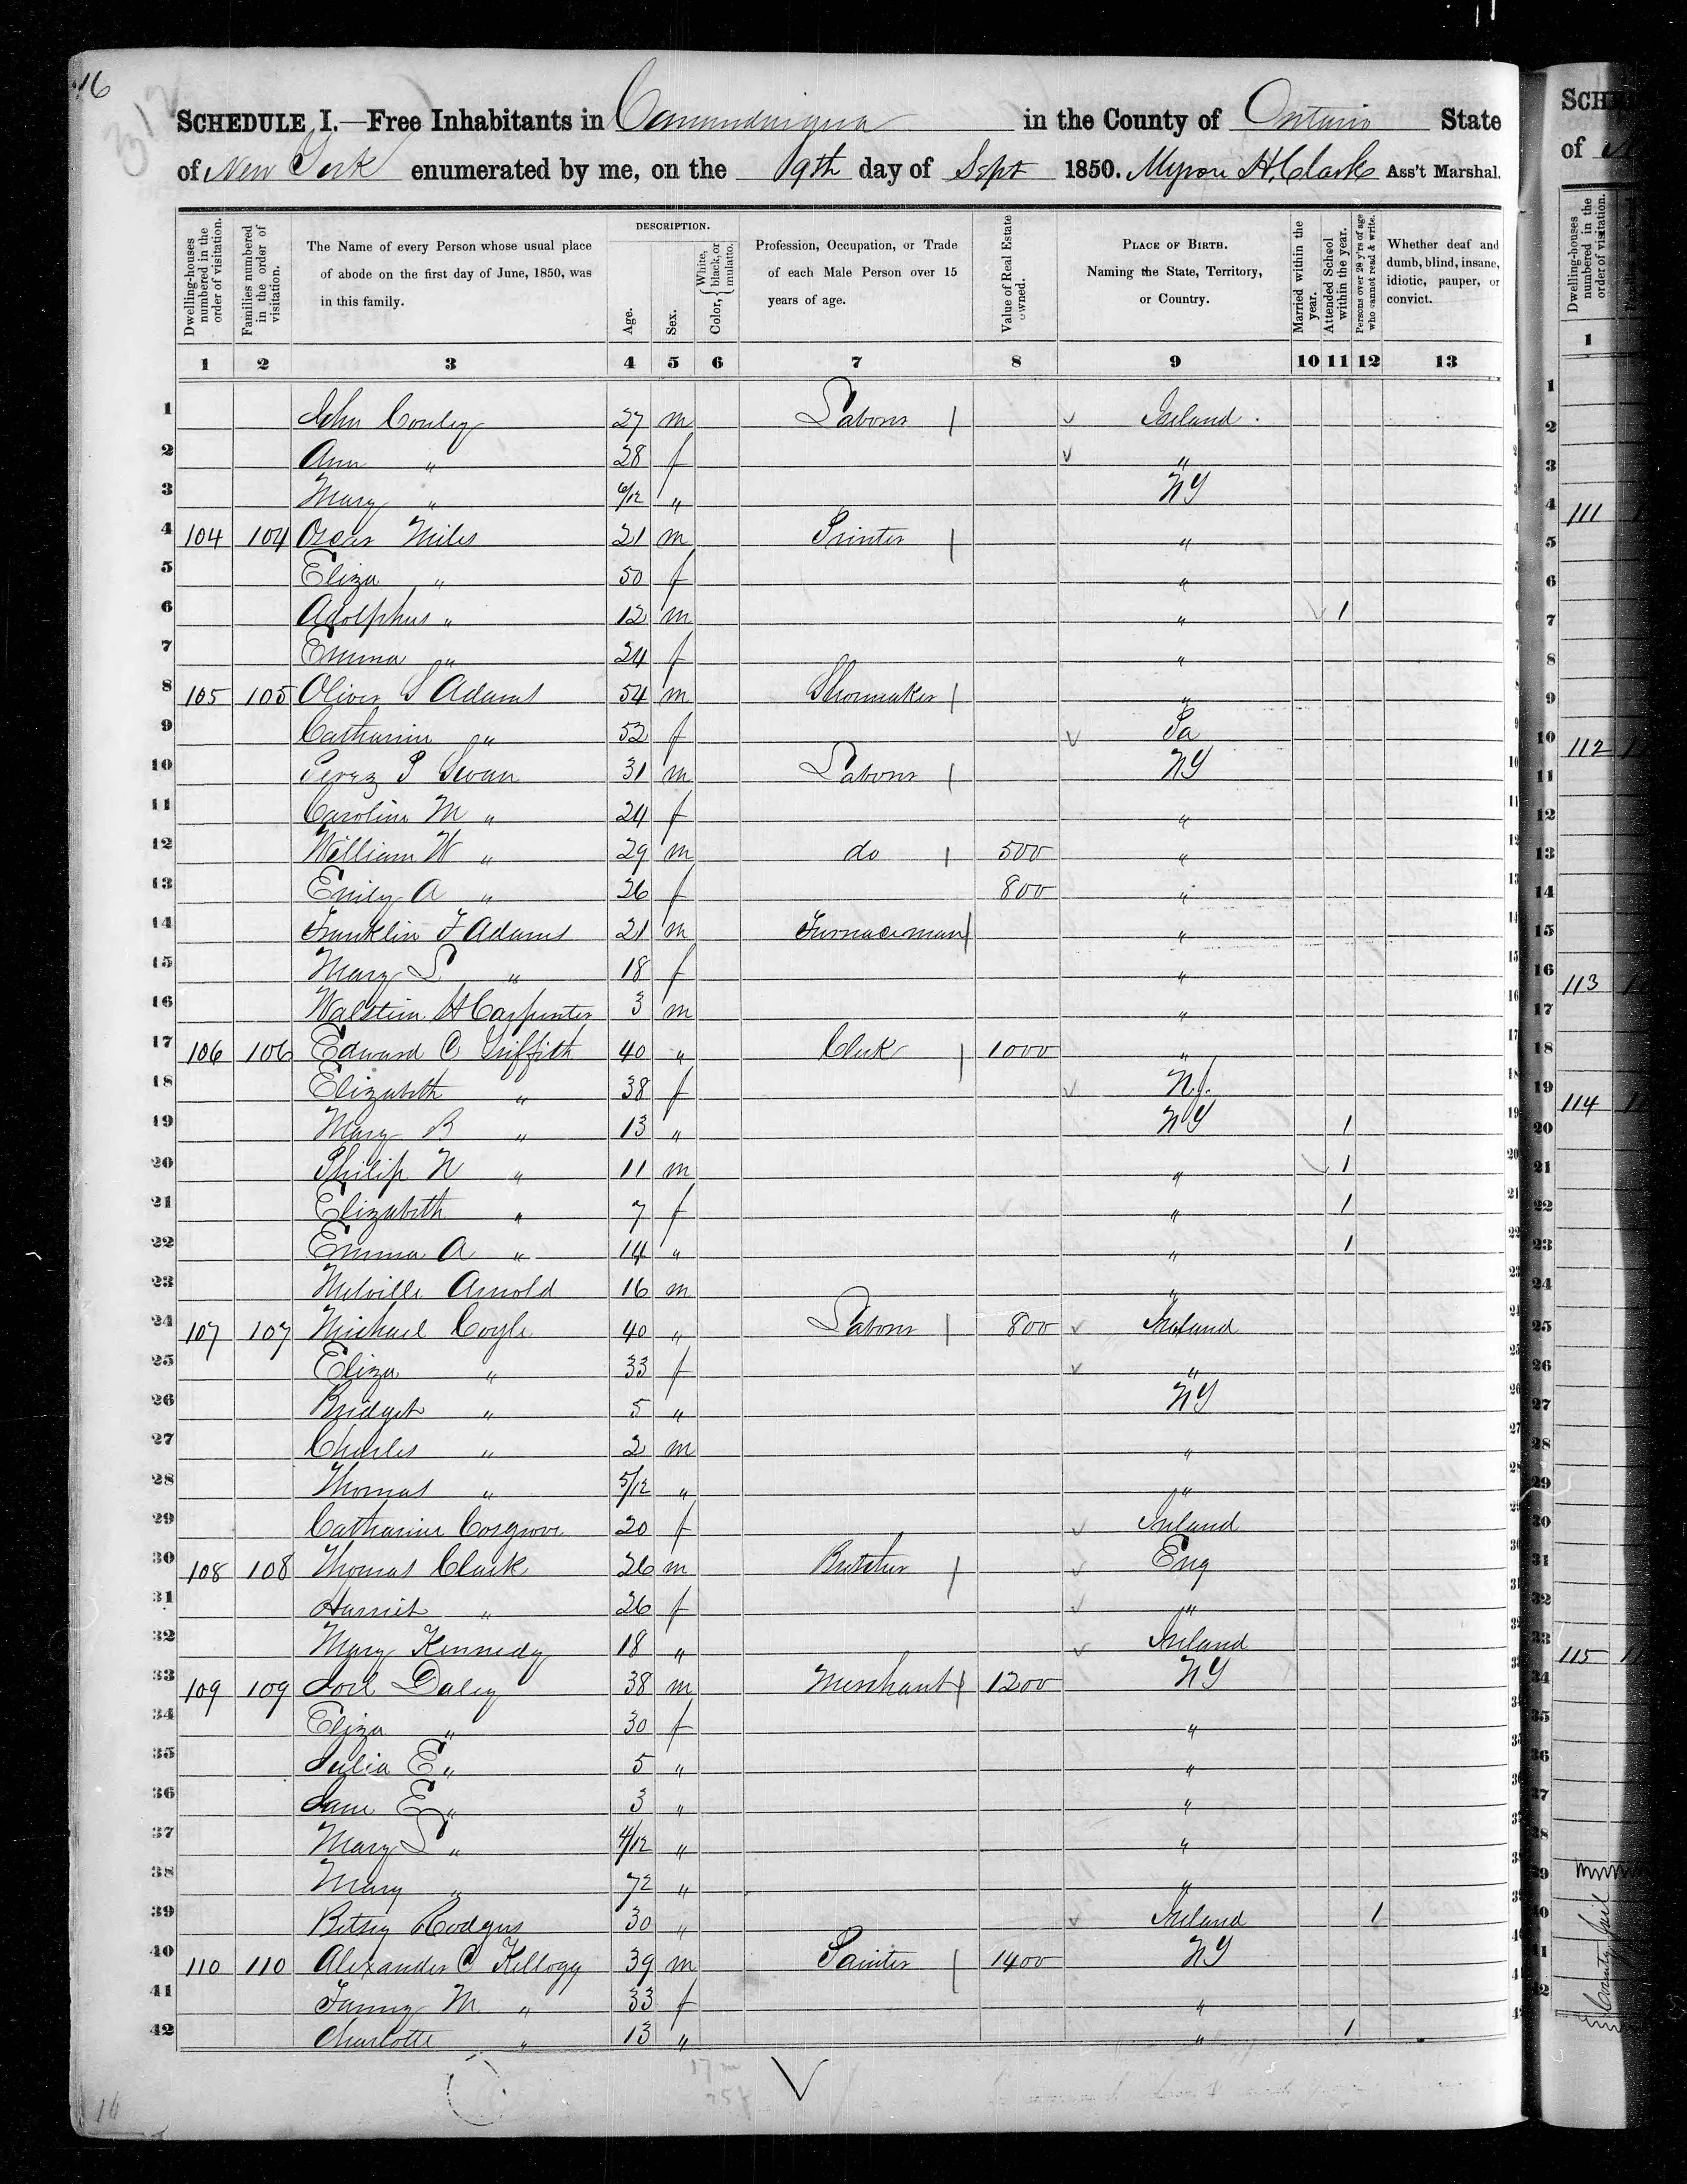 16
312
SCHEDULE I.—Free Inhabitants in Canandaigua in the County of Ontario State
of New York enumerated by me, on the 19th day of Sept 1850. Myron H. Clark Ass't Marshal.
Dwelling-houses numbered in the order of visitation.
Families numbered in the order of visitation.
The Name of every Person whose usual place of abode on the first day of June, 1850, was in this family.
DESCRIPTION.
Age.
Sex.
Color, { White, black, or mulatto.
Profession, Occupation, or Trade of each Male Person over 15 years of age.
Value of Real Estate owned.
PLACE OF BIRTH. Naming the State, Territory, or Country.
Married within the year.
Attended School within the year.
Persons over 20 y'rs of age who cannot read & write.
Whether deaf and dumb, blind, insane, idiotic, pauper, or convict.
1 2 3 4 5 6 7 8 9 10 11 12 13
1 John Conley 27 m Laborer / v Ireland
2 Ann " 28 f v "
3 Mary " 6/12 " NY
4 104 104 Oscar Miles 21 m Printer / "
5 Eliza " 50 f "
6 Adolphus " 12 m " v 1
7 Emma " 24 f "
8 105 105 Oliver S Adams 54 m Shoemaker / "
9 Catharine " 52 f v Pa
10 Perez P Swan 31 m Laborer / NY
11 Caroline M " 24 f "
12 William W " 29 m do / 500 "
13 Emily A " 26 f 800 "
14 Franklin F Adams 21 m Furnaceman / "
15 Mary L " 18 f "
16 Walstein H Carpenter 3 m "
17 106 106 Edward C Griffith 40 " Clerk / 1000 "
18 Elizabeth " 38 f v N.J.
19 Mary B " 13 " NY 1
20 Philip N " 11 m " v 1
21 Elizabeth " 7 f " 1
22 Emma A " 14 " " 1
23 Melville Arnold 16 m "
24 107 107 Michael Coyle 40 " Laborer / 800 v Ireland
25 Eliza " 33 f v "
26 Bridget " 5 " NY
27 Charles " 2 m "
28 Thomas " 5/12 " "
29 Catharine Cosgrove 20 f v Ireland
30 108 108 Thomas Clark 26 m Butcher / v Eng
31 Harriet " 26 f v "
32 Mary Kennedy 18 " v Ireland
33 109 109 Joel Daley 38 m Merchant / 1200 NY
34 Eliza " 30 f "
35 Julia E " 5 " "
36 Jane E " 3 " "
37 Mary L " 4/12 " "
38 Mary " 72 " "
39 Betsey Rodgers 30 " v Ireland 1
40 110 110 Alexander C Kellogg 39 m Painter / 1400 NY
41 Fanny M " 33 f "
42 Charlotte " 13 " " 1
17 m
25 f
16
SCHE
of
Dwelling-houses numbered in the order of visitation.
1
111
112
113
114
115
County Jail